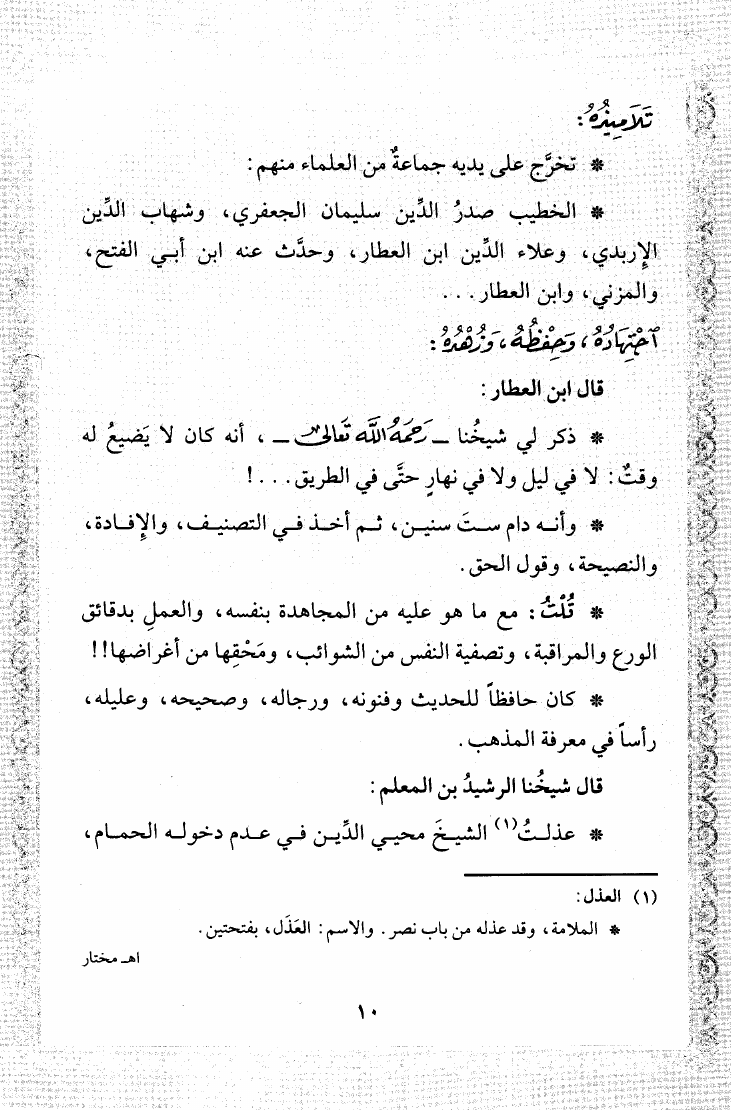 تَلَامِيذُهُ:
* تخرَّج على يديه جماعةٌ من العلماء منهم:
* الخطيب صدرُ الدِّين سليمان الجعفري، وشهاب الدِّين
الإربدي، وعلاء الدِّين ابن العطار، وحدَّث عنه ابن أبي الفتح،
والمزني، وابن العطار...
ٱجْتِهَادُهُ، وَحِفْظُهُ، وَزُهْدُهُ:
قال ابن العطار:
* ذكر لي شيخُنا ـ رَحِمَهُ اللَّه تَعَالىٰ ـ، أنه كان لا يَضيعُ له
وقتٌ: لا في ليل ولا في نهارٍ حتَّى في الطريق...!
* وأنـه دام سـتَ سنيـن، ثـم أخـذ فـي التصنيـف، والإفـادة،
والنصيحة، وقول الحق.
* قُلْتُ: مع ما هو عليه من المجاهدة بنفسه، والعملِ بدقائق
الورع والمراقبة، وتصفية النفس من الشوائب، ومَحْقِها من أغراضها!!
* كان حافظاً للحديث وفنونه، ورجاله، وصحيحه، وعليله،
رأساً في معرفة المذهب.
قال شيخُنا الرشيدُ بن المعلم:
* عذلـتُ(١) الشيـخَ محيـي الدِّيـن فـي عـدم دخولـه الحمـام،
(١) العذل:
* الملامة، وقد عذله من باب نصر. والاسم: العَذَل، بفتحتين.
اهـ مختار
١٠